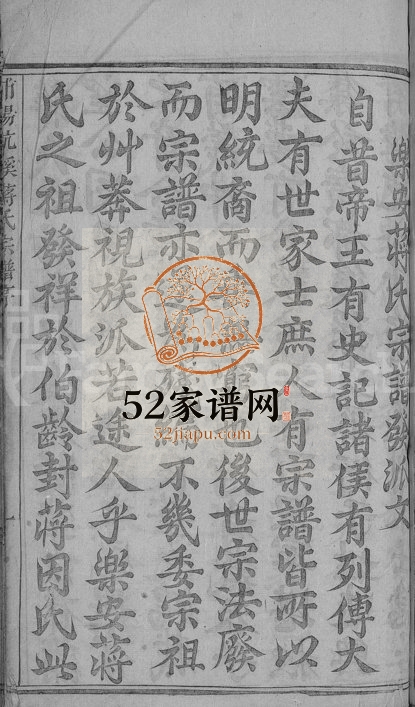 樂安蔣氏宗譜發派文
自昔帝王有史記諸侯有列傳大
夫有世家士庶人有宗譜皆所以
明統裔而也後世宗法廢
而宗譜亦不幾委宗祖
於艸莽視族派若途人乎樂安蔣
氏之祖發祥於伯齡封蔣因氏此
陽沆溪蔣氏宗譜
52家谱网
52jiapu.com